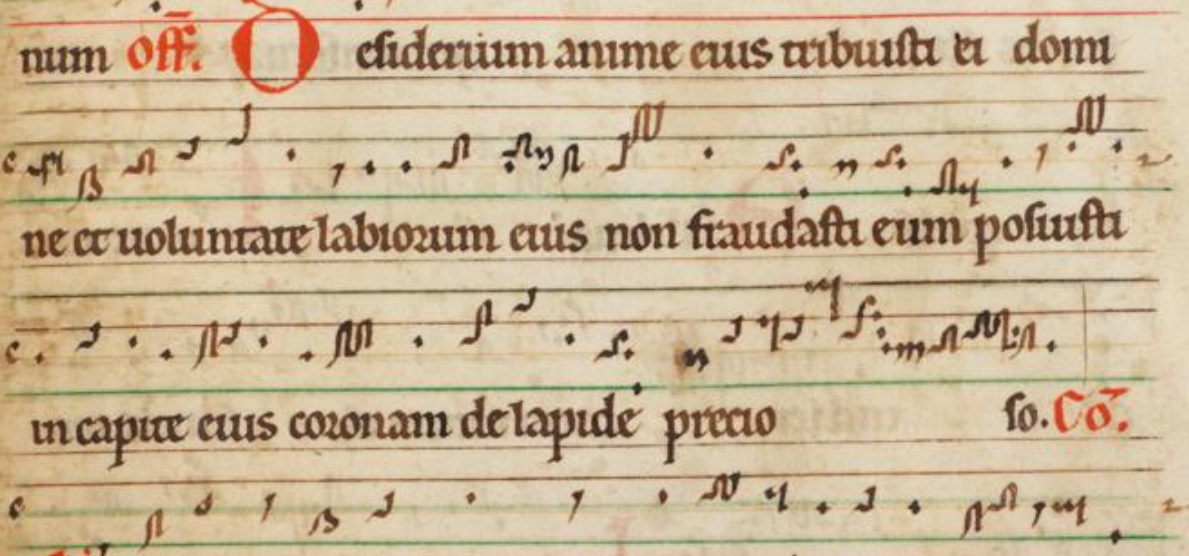 num Off. Desiderium anime eius tribuisti ei domi
ne et uoluntate labiorum eius non fraudasti eum posuisti
in capite eius coronam de lapide precio so. Cō.